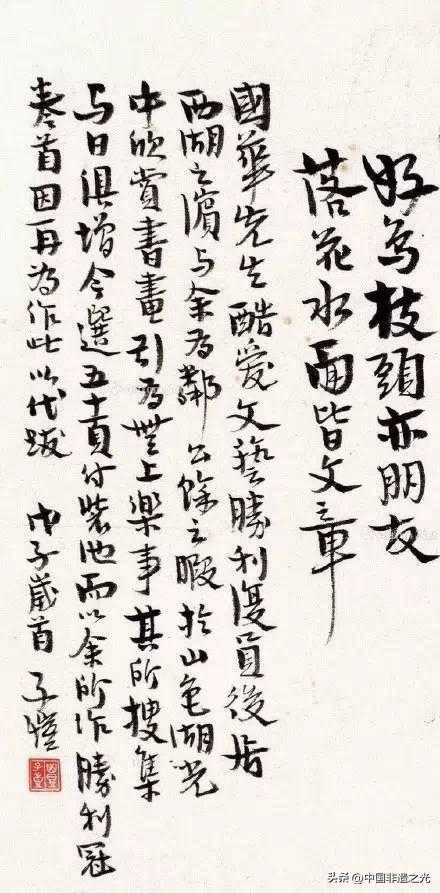 好鳥枝頭亦朋友
落花水面皆文章
國華先生酷愛文藝勝利復員後居
西湖之濱与余為鄰公餘之暇於山色湖光
中欣賞書畫引為無上樂事其所搜集
与日俱增今選五十頁付裝池而以余所作勝利冠
卷首因再為作此以代跋 戊子歲首 子愷
头条@中国非遗之光